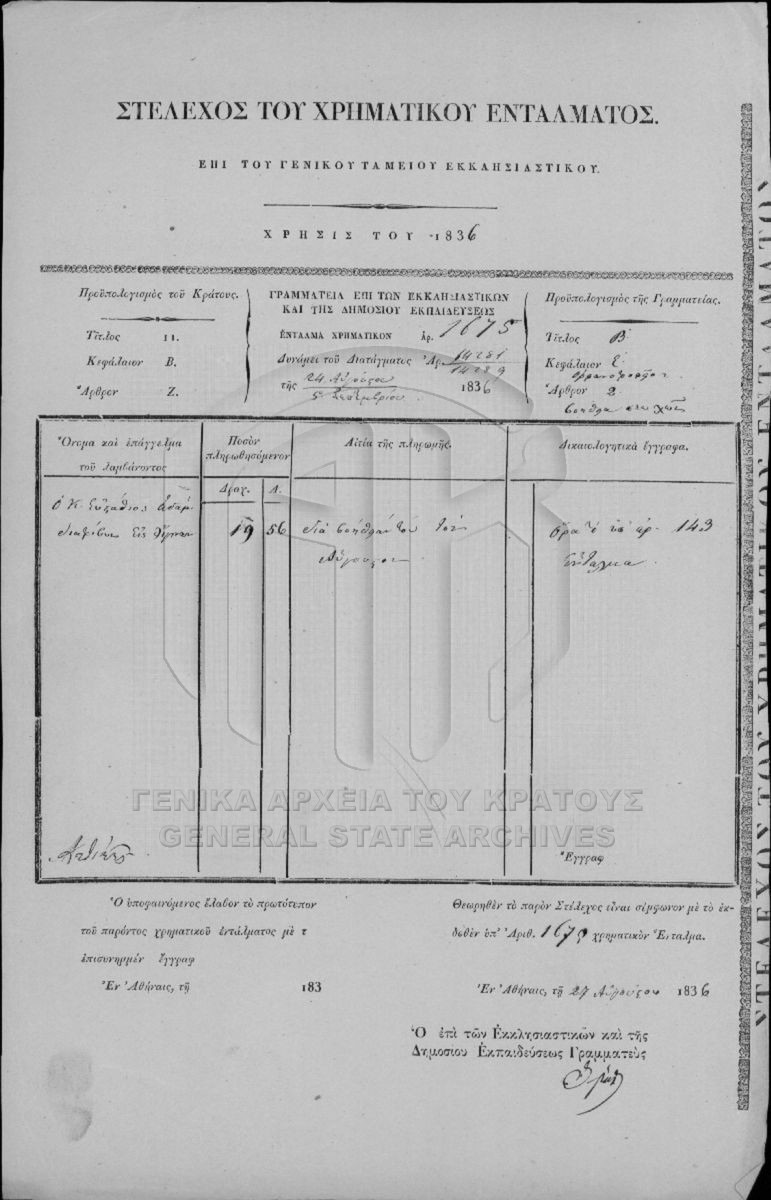 ΣΤΕΛΕΧΟΣ ΤΟΥ ΧΡΗΜΑΤΙΚΟΥ ΕΝΤΑΛΜΑΤΟΣ.
ΕΠΙ ΤΟΥ ΓΕΝΙΚΟΥ ΤΑΜΕΙΟΥ ΕΚΚΛΗΣΙΑΣΤΙΚΟΥ.
ΧΡΗΣΙΣ ΤΟΥ 1836
Προϋπολογισμὸς τοῦ Κράτους.
Τίτλος 11.
Κεφάλαιον Β.
Ἄρθρον Ζ.
ΓΡΑΜΜΑΤΕΙΑ ΕΠΙ ΤΩΝ ΕΚΚΛΗΣΙΑΣΤΙΚΩΝ
ΚΑΙ ΤΗΣ ΔΗΜΟΣΙΟΥ ΕΚΠΑΙΔΕΥΣΕΩΣ
ΕΝΤΑΛΜΑ ΧΡΗΜΑΤΙΚΟΝ Ἀρ. 1675
Δυνάμει τοῦ Διατάγματος Ἀρ. 14281
14289
τῆς 24 Αὐγούστου 1836
5 Σεπτεμβρίου
Προϋπολογισμὸς τῆς Γραμματείας.
Τίτλος Β
Κεφάλαιον Ε
Ἄρθρον 2
Ὄνομα καὶ ἐπάγγελμα
τοῦ λαμβάνοντος
Ποσὸν
πληρωθησόμενον
Δραχ. Λ.
Αἰτία τῆς πληρωμῆς.
Δικαιολογητικὰ ἔγγραφα.
Ὁ Κ.
19 56 διὰ τοῦ 143
Αὔγουστον
ἔνταλμα
ΓΕΝΙΚΑ ΑΡΧΕΙΑ ΤΟΥ ΚΡΑΤΟΥΣ
GENERAL STATE ARCHIVES
Ἔγγραφ
Ὁ ὑποφαινόμενος ἔλαβον τὸ πρωτότυπον
τοῦ παρόντος χρηματικοῦ ἐντάλματος μὲ τ
ἐπισυνημμέν ἔγγραφ
Ἐν Ἀθήναις, τῇ 183
Θεωρηθὲν τὸ παρὸν Στέλεχος εἶναι σύμφωνον μὲ τὸ ἐκ-
δοθὲν ὑπ' Ἀριθ. 1675 χρηματικὸν Ἔνταλμα.
Ἐν Ἀθήναις, τῇ 27 Αὐγούστου 1836
Ὁ ἐπὶ τῶν Ἐκκλησιαστικῶν καὶ τῆς
Δημοσίου Ἐκπαιδεύσεως Γραμματεὺς
ΣΤΕΛΕΧΟΣ ΤΟΥ ΧΡΗΜΑΤΙΚΟΥ ΕΝΤΑΛΜΑΤΟΣ